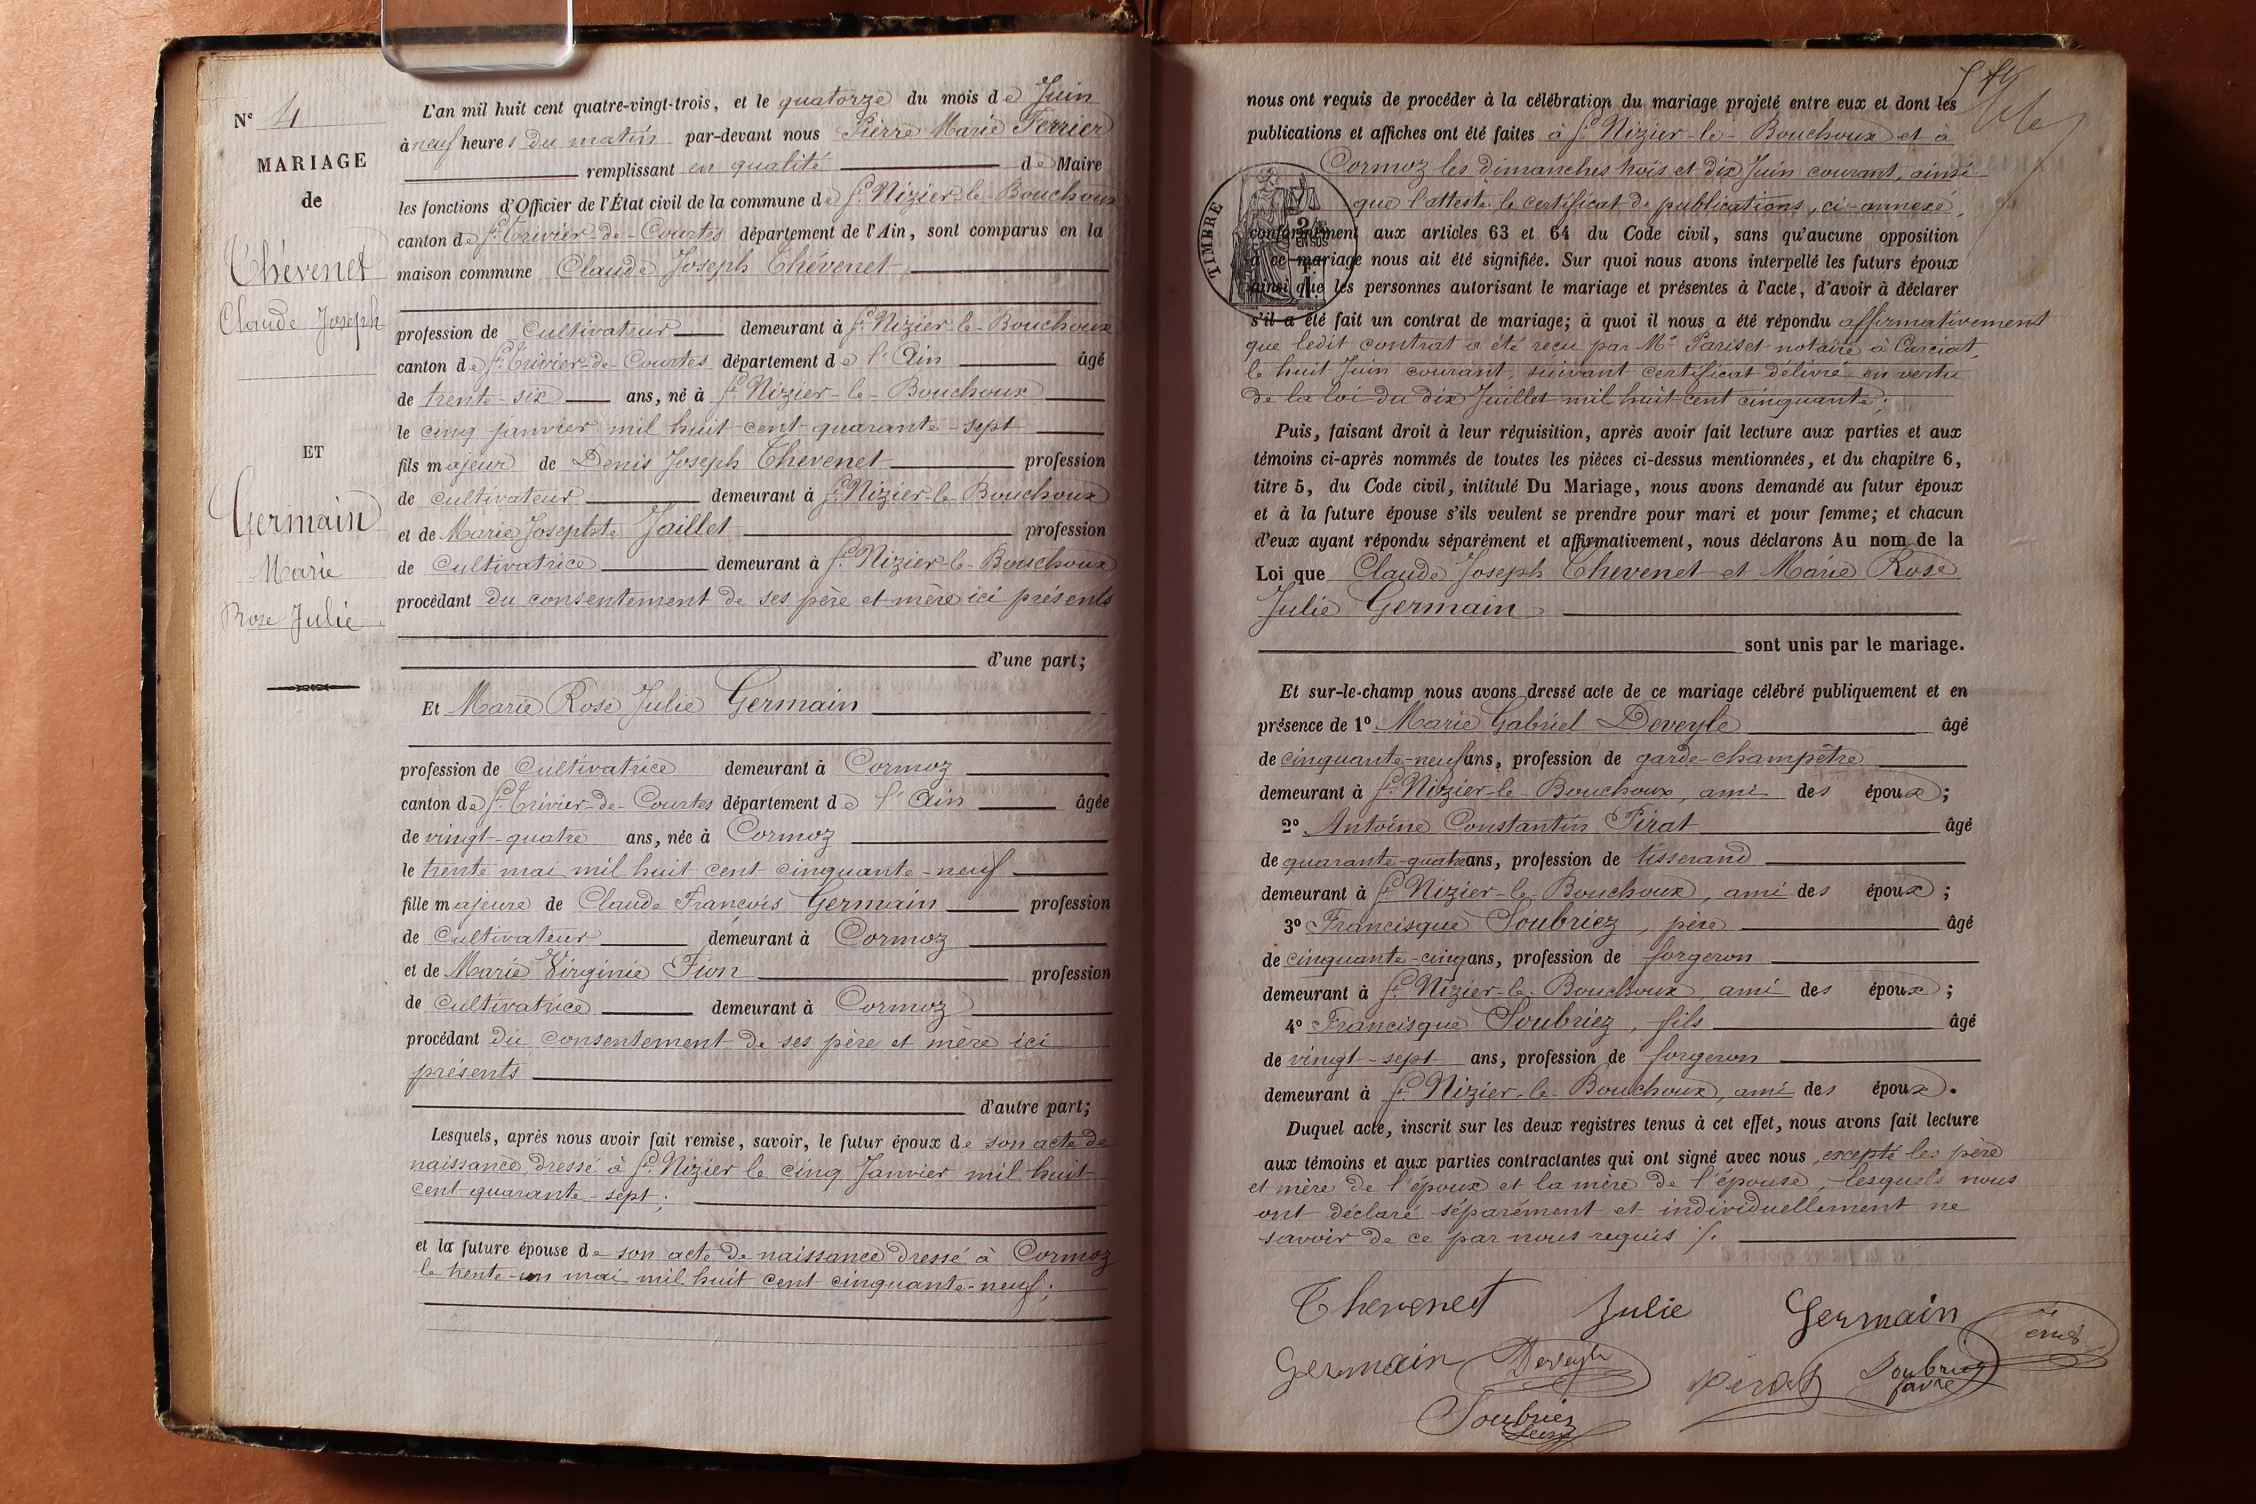 N° 4
MARIAGE
de
Thévenet
Claude Joseph
ET
Germain
Marie
Rose Julie
L'an mil huit cent quatre-vingt-trois, et le quatorze du mois de Juin
à neuf heures du matin par-devant nous Pierre Marie Ferrier
remplissant en qualité de Maire
les fonctions d'Officier de l'État civil de la commune de St Nizier-le-Bouchoux
canton de St Trivier-de-Courtes département de l'Ain, sont comparus en la
maison commune Claude Joseph Thévenet
profession de Cultivateur demeurant à St Nizier-le-Bouchoux
canton de St Trivier-de-Courtes département de l'Ain âgé
de trente-six ans, né à St Nizier-le-Bouchoux
le cinq janvier mil huit cent quarante-sept
fils majeur de Denis Joseph Thévenet profession
de cultivateur demeurant à St Nizier-le-Bouchoux
et de Marie Josephte Jaillet profession
de Cultivatrice demeurant à St Nizier-le-Bouchoux
procédant du consentement de ses père et mère ici présents
d'une part;
Et Marie Rose Julie Germain
profession de Cultivatrice demeurant à Cormoz
canton de St Trivier-de-Courtes département de l'Ain âgée
de vingt-quatre ans, née à Cormoz
le trente mai mil huit cent cinquante-neuf
fille majeure de Claude François Germain profession
de Cultivateur demeurant à Cormoz
et de Marie Virginie Fion profession
de Cultivatrice demeurant à Cormoz
procédant du consentement de ses père et mère ici
présents
d'autre part;
Lesquels, après nous avoir fait remise, savoir, le futur époux de son acte de
naissance dressé à St Nizier le cinq Janvier mil huit
cent quarante-sept;
et la future épouse de son acte de naissance dressé à Cormoz
le trente-un mai mil huit cent cinquante-neuf;
nous ont requis de procéder à la célébration du mariage projeté entre eux et dont les
publications et affiches ont été faites à St Nizier-le-Bouchoux et à
Cormoz les dimanches trois et dix Juin courant, ainsi
que l'atteste le certificat de publications, ci-annexé,
TIMBRE
conformément aux articles 63 et 64 du Code civil, sans qu'aucune opposition
à ce mariage nous ait été signifiée. Sur quoi nous avons interpellé les futurs époux
ainsi que les personnes autorisant le mariage et présentes à l'acte, d'avoir à déclarer
s'il a été fait un contrat de mariage; à quoi il nous a été répondu affirmativement
que ledit contrat a été reçu par Me Pariset notaire à Curciat,
le huit Juin courant, suivant certificat délivré en vertu
de la loi du dix Juillet mil huit cent cinquante;
Puis, faisant droit à leur réquisition, après avoir fait lecture aux parties et aux
témoins ci-après nommés de toutes les pièces ci-dessus mentionnées, et du chapitre 6,
titre 5, du Code civil, intitulé Du Mariage, nous avons demandé au futur époux
et à la future épouse s'ils veulent se prendre pour mari et pour femme; et chacun
d'eux ayant répondu séparément et affirmativement, nous déclarons Au nom de la
Loi que Claude Joseph Thevenet et Marie Rose
Julie Germain
sont unis par le mariage.
Et sur-le-champ nous avons dressé acte de ce mariage célébré publiquement et en
présence de 1° Marie Gabriel Deveyle âgé
de cinquante-neuf ans, profession de garde-champêtre
demeurant à St Nizier-le-Bouchoux, ami des époux;
2° Antoine Constantin Pirat âgé
de quarante-quatre ans, profession de tisserand
demeurant à St Nizier-le-Bouchoux, ami des époux;
3° Francisque Soubriez, père âgé
de cinquante-cinq ans, profession de forgeron
demeurant à St Nizier-le-Bouchoux ami des époux;
4° Francisque Soubriez, fils âgé
de vingt-sept ans, profession de forgeron
demeurant à St Nizier-le-Bouchoux, ami des époux.
Duquel acte, inscrit sur les deux registres tenus à cet effet, nous avons fait lecture
aux témoins et aux parties contractantes qui ont signé avec nous, excepté les père
et mère de l'époux et la mère de l'épouse, lesquels nous
ont déclaré séparément et individuellement ne
savoir de ce par nous requis /.
Thevenet Julie Germain
Germain Deveyle Pirat Soubriez
Soubriez